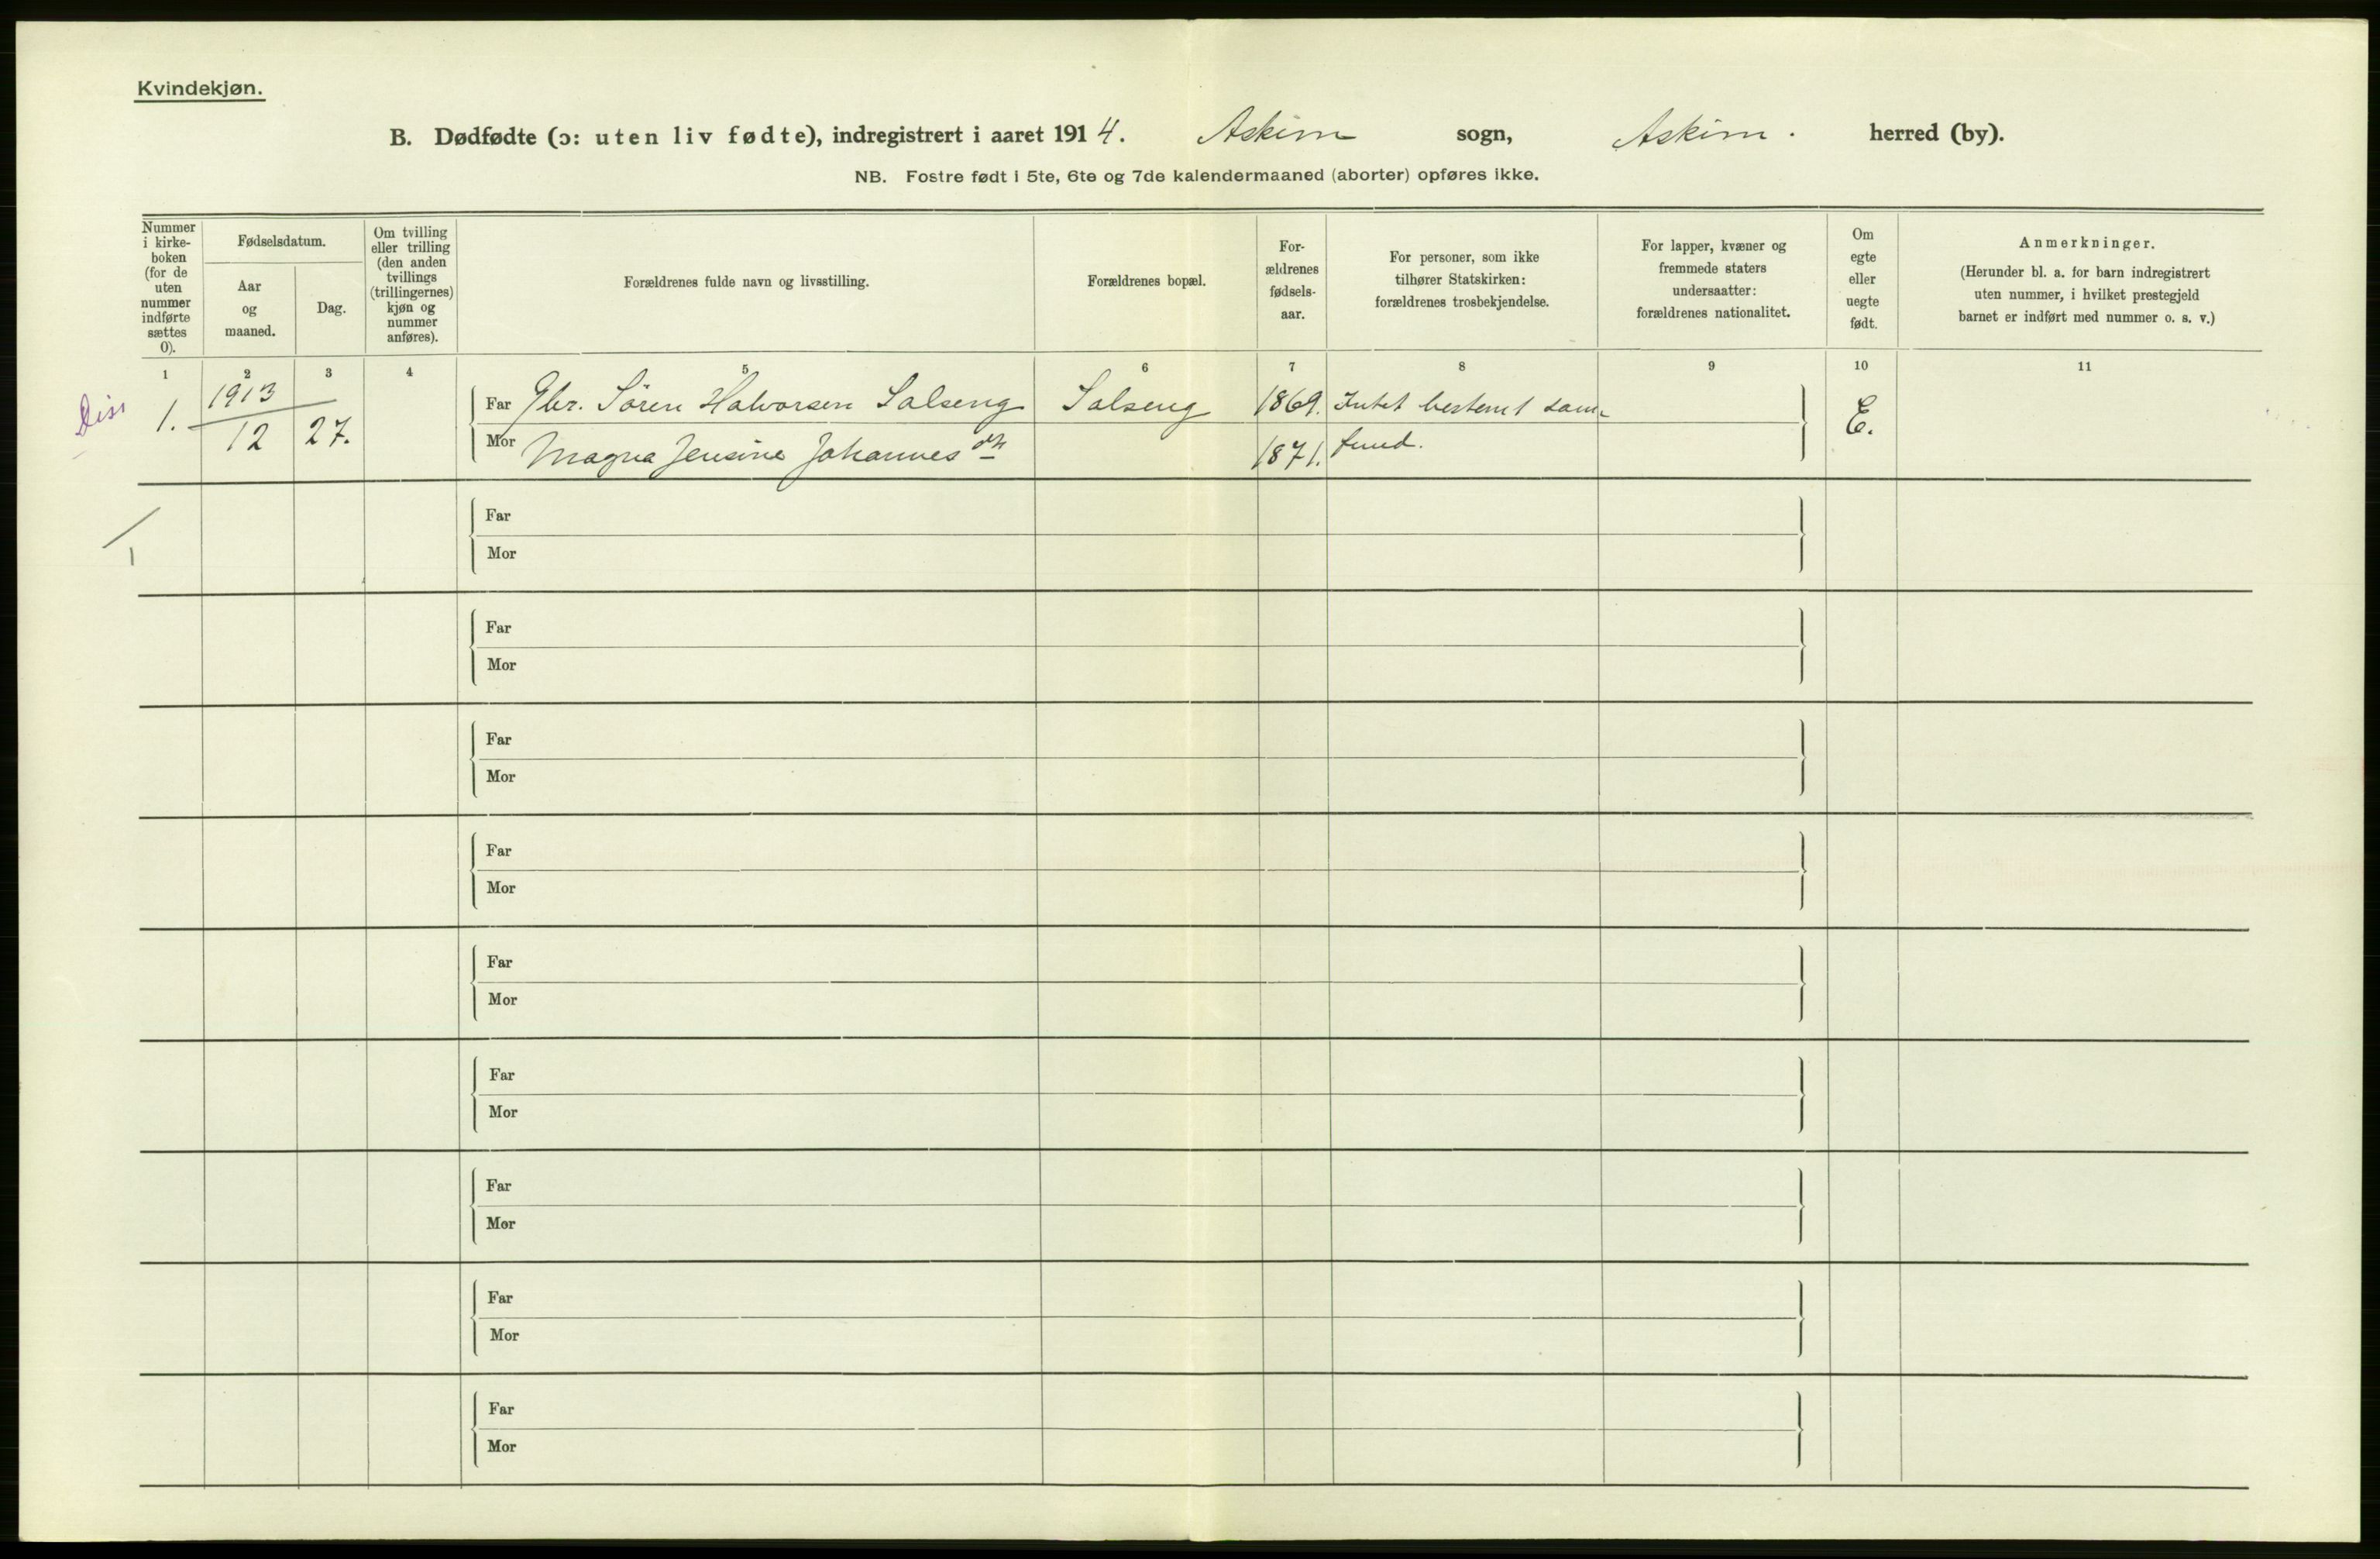 Kvindekjøn.
B. Dødfødte (ɔ: uten liv fødte), indregistrert i aaret 1914. Askim sogn, Askim. herred (by).
NB. Fostre født i 5te, 6te og 7de kalendermaaned (aborter) opføres ikke.
Nummer i kirke-
boken
(for de
uten
nummer
indførte
sættes
0).
Fødselsdatum.
Aar
og
maaned.
Dag.
Om tvilling
eller trilling
(den anden
tvillings
(trillingernes)
kjøn og
nummer
anføres).
Forældrenes fulde navn og livsstilling.
Forældrenes bopæl.
For-
ældrenes
fødsels-
aar.
For personer, som ikke
tilhører Statskirken:
forældrenes trosbekjendelse.
For lapper, kvæner og
fremmede staters
undersaatter:
forældrenes nationalitet.
Om
egte
eller
uegte
født.
Anmerkninger.
(Herunder bl. a. for barn indregistrert
uten nummer, i hvilket prestegjeld
barnet er indført med nummer o. s. v.)
1 2 3 4 5 6 7 8 9 10 11
Diss
1. 1913 12 27.
Far Gbr. Sören Halvorsen Solseng Solseng 1869. Intet bestemt sam- E.
Mor Magna Jensine Johannes dtr 1871. fund.
Far
Mor
Far
Mor
Far
Mor
Far
Mor
Far
Mor
Far
Mor
Far
Mor
Far
Mor
Far
Mor